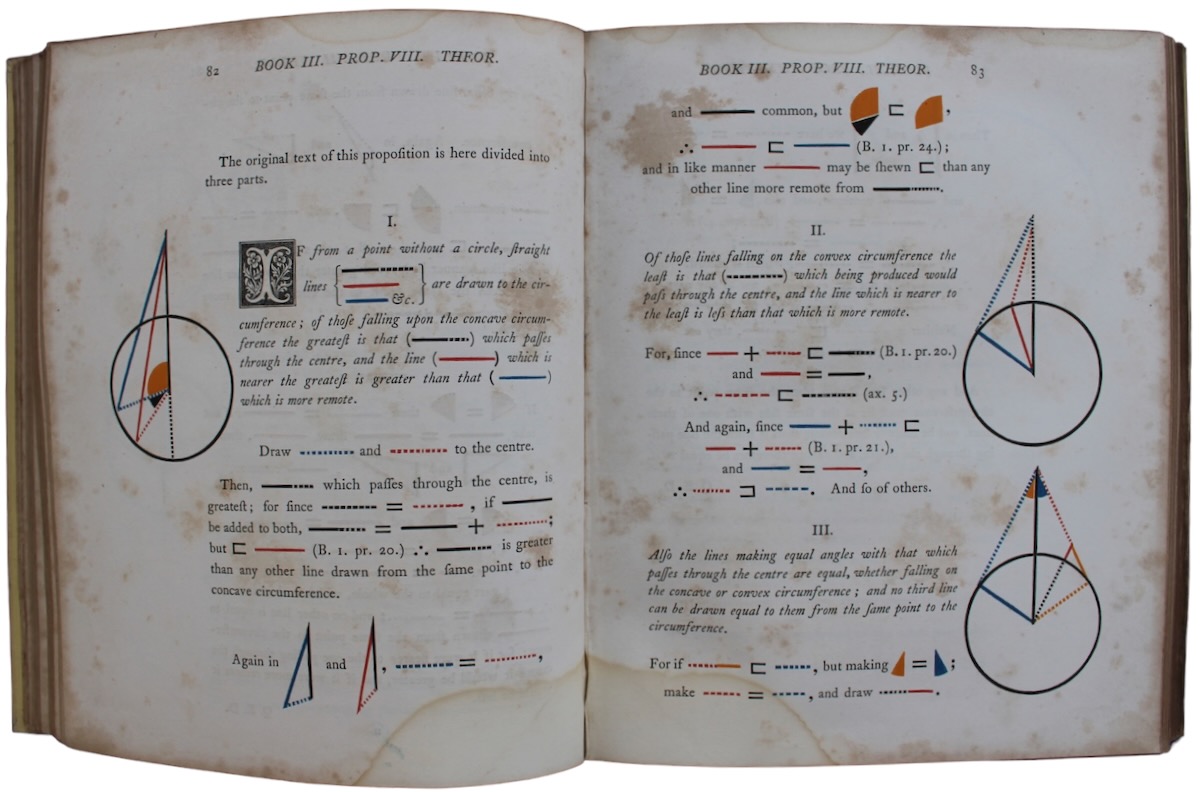 82 BOOK III. PROP. VIII. THEOR.
The original text of this propoſition is here divided into
three parts.
I.
IF from a point without a circle, ſtraight
lines { &c. } are drawn to the cir-
cumference ; of thoſe falling upon the concave circum-
ference the greateſt is that ( ) which paſſes
through the centre, and the line ( ) which is
nearer the greateſt is greater than that ( )
which is more remote.
Draw and to the centre.
Then, which paſſes through the centre, is
greateſt ; for ſince = , if
be added to both, = + ;
but ⊏ (B. 1. pr. 20.) ∴ is greater
than any other line drawn from the ſame point to the
concave circumference.
Again in and , = ,
BOOK III. PROP. VIII. THEOR. 83
and common, but ⊏ ,
∴ ⊏ (B. 1. pr. 24.) ;
and in like manner may be ſhewn ⊏ than any
other line more remote from .
II.
Of thoſe lines falling on the convex circumference the
leaſt is that ( ) which being produced would
paſs through the centre, and the line which is nearer to
the leaſt is leſs than that which is more remote.
For, ſince + ⊏ (B. 1. pr. 20.)
and = ,
∴ ⊏ (ax. 5.)
And again, ſince + ⊏
+ (B. 1. pr. 21.),
and = ,
∴ ⊐ . And ſo of others.
III.
Alſo the lines making equal angles with that which
paſſes through the centre are equal, whether falling on
the concave or convex circumference ; and no third line
can be drawn equal to them from the ſame point to the
circumference.
For if ⊏ , but making = ;
make = , and draw .